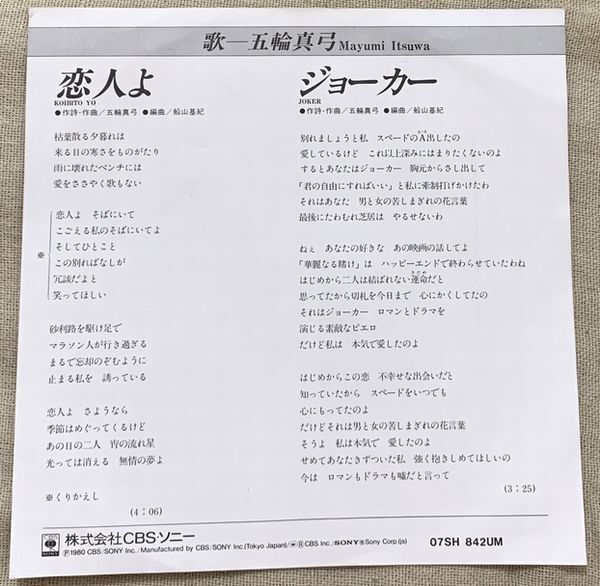 歌―五輪真弓 Mayumi Itsuwa
恋人よ
KOIBITO YO
●作詩・作曲/五輪真弓 ●編曲/船山基紀
枯葉散る夕暮れは
来る日の寒さをものがたり
雨に壊れたベンチには
愛をささやく歌もない
※
恋人よ そばにいて
こごえる私のそばにいてよ
そしてひとこと
この別ればなしが
冗談だよと
笑ってほしい
砂利路を駆け足で
マラソン人が行き過ぎる
まるで忘却のぞむように
止まる私を 誘っている
恋人よ さようなら
季節はめぐってくるけど
あの日の二人 宵の流れ星
光っては消える 無情の夢よ
※くりかえし
(4:06)
ジョーカー
JOKER
●作詩・作曲/五輪真弓 ●編曲/船山基紀
別れましょうと私 スペードのA出したの
愛しているけど これ以上深みにはまりたくないのよ
するとあなたはジョーカー 胸元からさし出して
「君の自由にすればいい」と私に牽制打げかけたわ
それはあなた 男と女の苦しまぎれの花言葉
最後にたわむれ芝居は やるせないわ
ねぇ あなたの好きな あの映画の話してよ
「華麗なる賭け」は ハッピーエンドで終わらせていたわね
はじめから二人は結ばれない運命だと
思ってたから切札を今日まで 心にかくしてたの
それはジョーカー ロマンとドラマを
演じる素敵なピエロ
だけど私は 本気で愛したのよ
はじめからこの恋 不幸せな出会いだと
知っていたから スペードをいつでも
心にもってたのよ
だけどそれは男と女の苦しまぎれの花言葉
そうよ 私は本気で 愛したのよ
せめてあなたきずついた私 強く抱きしめてほしいの
今は ロマンもドラマも嘘だと言って
(3:25)
株式会社CBS・ソニー
Ⓟ1980 CBS/SONY Inc./Manufactured by CBS/SONY Inc.(Tokyo Japan)/ CBS Inc./SONY Sony Corp.(js)
07SH 842UM